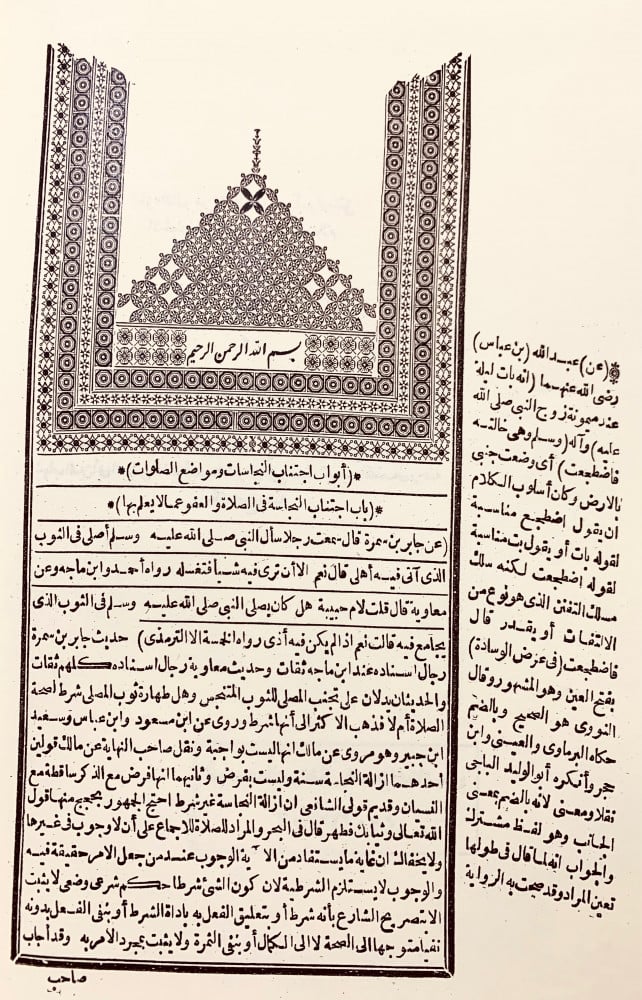 بسم الله الرحمن الرحيم
*(أبواب اجتناب النجاسات ومواضع الصلوات)*
*(باب اجتناب النجاسة فى الصلاة والعفو عمالا يعلم بها)*
(عن جابر بن سمرة قال سمعت رجلا سأل النبى صلى الله عليه وسلم أصلى فى الثوب
الذى آتى فيه أهلى قال نعم الا أن ترى فيه شيأ فتغسله رواه أحمد وابن ماجه وعن
معاوية قال قلت لام حبيبة هل كان يصلى النبى صلى الله عليه وسلم فى الثوب الذى
يجامع فيه قالت نعم اذا لم يكن فيه أذى رواه الخمسة الا الترمذى) حديث جابر بن سمرة
رجال اسناده عند ابن ماجه ثقات وحديث معاوية رجال اسناده كلهم ثقات
والحديثان يدلان على تجنب المصلى للثوب المتنجس وهل طهارة ثوب المصلى شرط لصحة
الصلاة أم لا فذهب الاكثر الى أنها شرط وروى عن ابن مسعود وابن عباس وسعيد
ابن جبير وهو مروى عن مالك انها ليست بواجبة ونقل صاحب النهاية عن مالك قولين
أحدهما ازالة النجاسة سنة وليست بفرض وثانيهما انها فرض مع الذكر ساقطة مع
النسيان وقديم قولى الشافعى ان ازالة النجاسة غير شرط احتج الجمهور بحجج منها قول
الله تعالى وثيابك فطهر قال فى البحر والمراد للصلاة للاجماع على أن لا وجوب فى غيرها
ولا يخفاك ان غاية ما يستفاد من الآية الوجوب عند من جعل الامر حقيقة فيه
والوجوب لا يستلزم الشرطية لان كون الشئ شرطا حكم شرعى وضعى لا يثبت
الا بتصريح الشارع بأنه شرط أو بتعليق الفعل به باداة الشرط أو بنفى الفعل بدونه
نفيا متوجها الى الصحة لا الى الكمال أو بنفى الثمرة ولا يثبت بمجرد الامر به وقد أجاب
صاحب
*(عن) عبد الله (بن عباس)
رضى الله عنهما (انه بات ليلة
عند ميمونة زوج النبى صلى الله
عليه) وآله (وسلم وهى خالته
فاضطجعت) أى وضعت جنبى
بالارض وكان أسلوب الكلام
أن يقول اضطجع مناسبة
لقوله بات أو يقول بت مناسبة
لقوله اضطجعت لكنه سلك
مسلك التفنن الذى هو نوع من
الالتفات أو يقدر قال
فاضطجعت (فى عرض الوسادة)
بفتح العين وهو المشهور وقال
النووى هو الصحيح وبالضم
حكاه البرماوى والعينى وابن
حجر وأنكره أبو الوليد الباجى
نقلا ومعنى لانه بالضم بمعنى
الجانب وهو لفظ مشترك
والجواب انه لما قال فى طولها
تعين المراد وقد صحت به الرواية